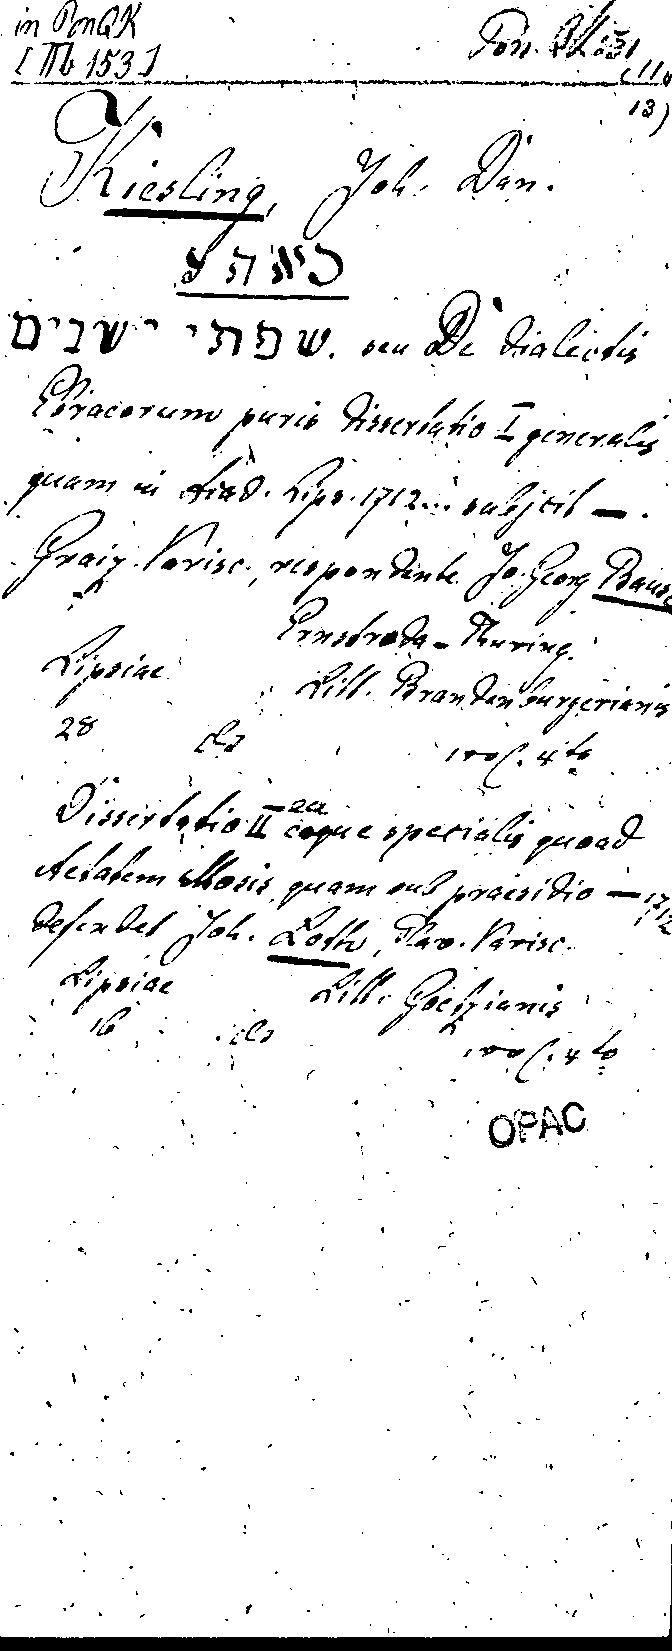 in PonQK
[IIb 153]
Pon. QK 31
(11.
13)
Kiesling, Joh. Dan.
שפתי ישבים. seu De dialectis
Ebraeorum puris dissertatio I generalis
quam in Acad. Lips. 1712... subjicit —.
Graiz. Varisc., respondente Jo. Georg Bause
Ernstroda-Thuring.
Lipsiae Litt. Brandenburgerianis
28 4to
Dissertatio II eaque specialis quoad
Aetatem Mosis, quam sub praesidio — 1712
defendet Joh. Loth, Plav. Varisc.
Lipsiae Litt. Goezianis
16 4to
OPAC